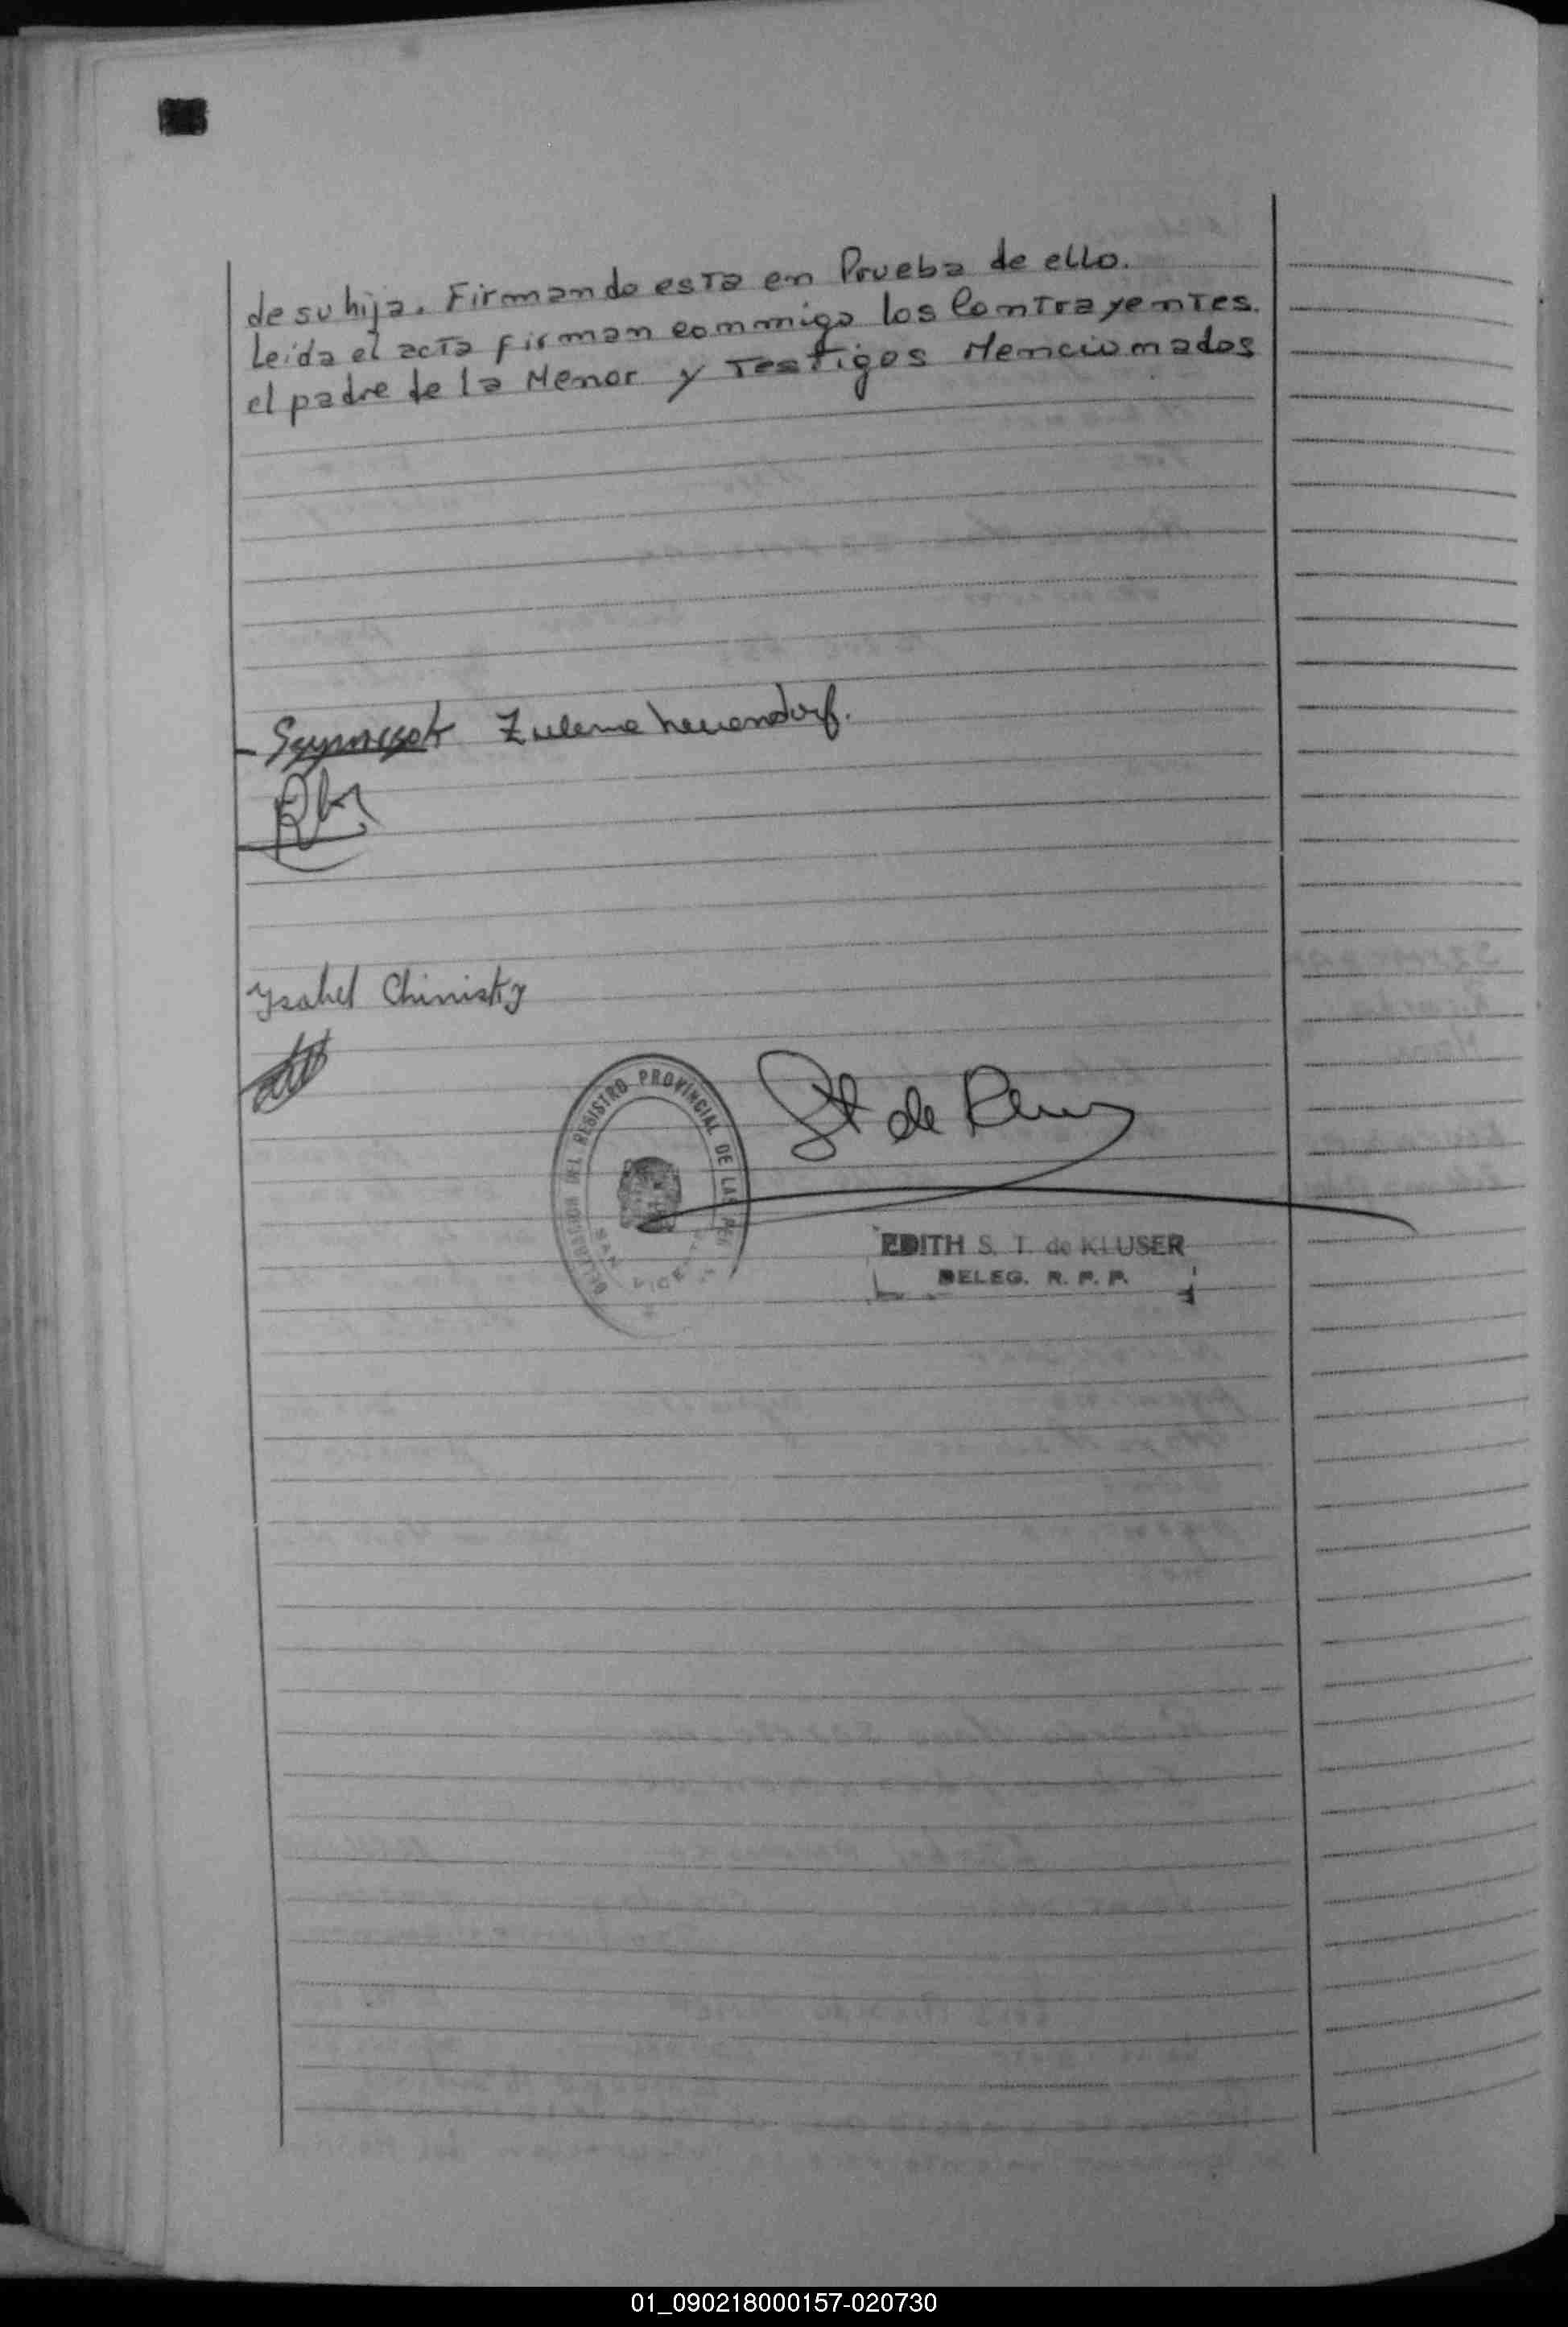 de su hija. Firmando esta en Prueba de ello.
Leida el acta firman commigo los Contrayentes.
el padre de la Menor y Testigos Mencionados
Zulema Neuendorf.
Ysabel Chinisky
DELEGACION DEL REGISTRO PROVINCIAL DE LAS PER
SAN VICENTE
de
EDITH S. T. de KLUSER
DELEG. R. P. P.
01_090218000157-020730